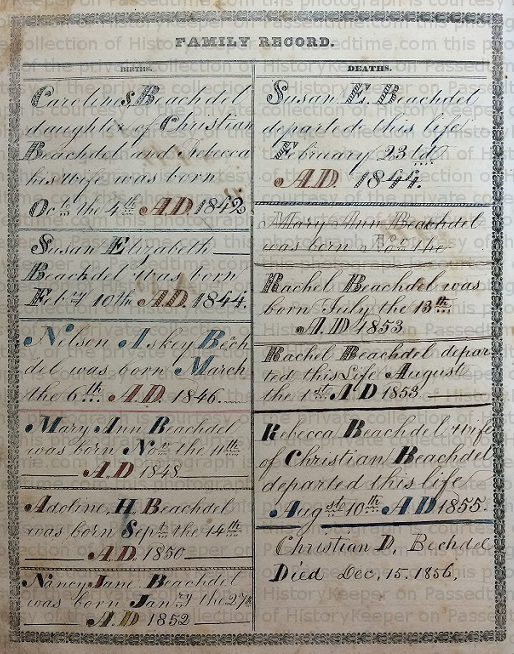 FAMILY RECORD.
BIRTHS.
Caroline S. Beachdel
daughter of Christian
Beachdel and Rebecca
his wife was born
Oct. the 4th A.D. 1842,
Susan Elizabeth
Beachdel was born
Feb.ry 10th A.D. 1844.
Nelson Askey Bech
del was born March
the 6th A.D. 1846.
Mary Ann Beachdel
was born Nov the 11th
A.D 1848
Adoline H. Beachdel
was born Sept. the 14th
A.D. 1850
Nancy Jane Beachdel
was born Jan.ry the 27th
A.D 1852
DEATHS.
Susan E. Beachdel
departed this life
February 23td.
A.D. 1844.
Mary Ann Beachdel
was born Nov the
Rachel Beachdel was
born July the 13th
A.D 1853
Rachel Beachdel depar
ted this Life August
the 1st A D 1853
Rebecca Beachdel wife
of Christian Beachdel
departed this life
Augst 10th A D 1855.
Christian D. Bechdel
Died Dec. 15. 1856,